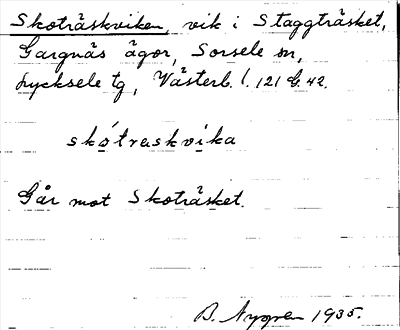 Skoträskviken, vik i Staggträsket,
Gargnäs ägor, Sorsele sn,
Lycksele tg, Västerb. l. 121 G. 42.
skótraskvika
Går mot Skoträsket.
B. Nygren 1935.